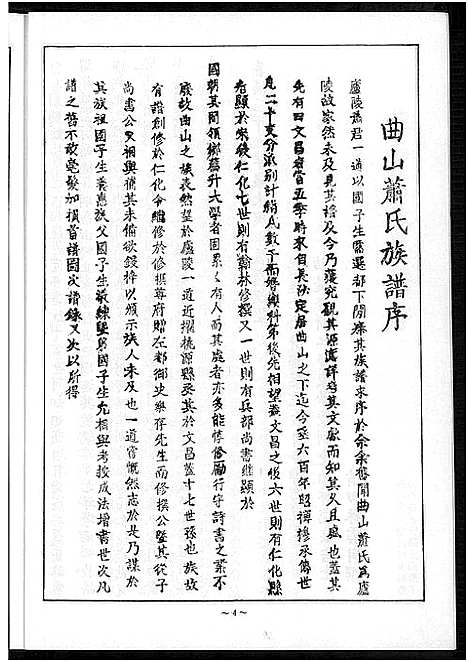 曲山蕭氏族譜序
廬陵蕭君一道以國子生需選都下間奉其族譜求序於余余舊聞曲山蕭氏為廬
陵故家然未及見其譜及今乃獲究觀其源濬詳容其文獻而知其久且盛也蓋其
先有曰文昌者當五季時來自長沙定居曲山之下迄今至六百年昭穆承傳世
凡二十支分派別計緡凡數千而簪纓科第後先相望蓋文昌之後六世則有仁化縣
君顯於宋後仁化七世則有翰林修撰又一世則有兵部尚書繼顯於
國朝其間領鄉薦升大學者固累累有人而其處者亦多能修飭勵行守詩書之業不
廢故曲山之族表然望於廬陵一道近擢桃源縣丞其於文昌蓋十七世孫也族故
有譜創修於仁化令繼修於修撰尊府贈左都御史樂存先生而修撰公暨其從子
尚書公又相與補其未備欲鋟梓以頒示族人未及也一道嘗慨然志於是乃謀於
其族祖國子生 族父國子生 暨弟國子生允相與考按成法增書世次凡
譜之舊不敢毫髮加損首譜圖次譜錄又次以所得
~4~